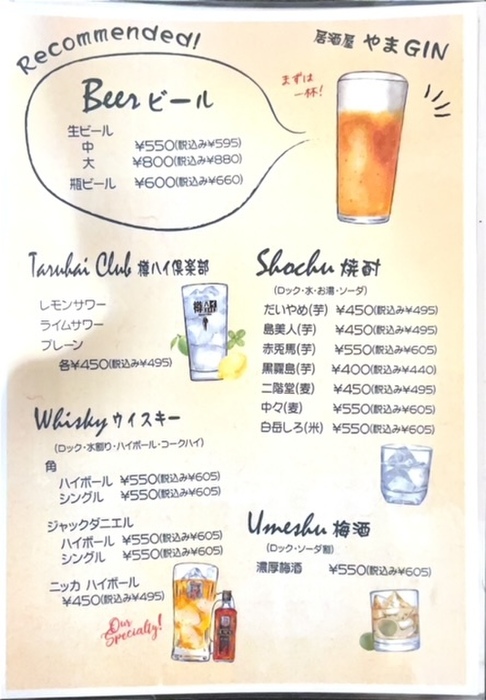 Recommended!
居酒屋 やまGIN
まずは
一杯!
Beer ビール
生ビール
中 ¥550(税込み¥595)
大 ¥800(税込み¥880)
瓶ビール ¥600(税込み¥660)
Taruhai Club 樽ハイ倶楽部
レモンサワー
ライムサワー
プレーン
各¥450(税込み¥495)
Whisky ウイスキー
(ロック・水割り・ハイボール・コークハイ)
角
ハイボール ¥550(税込み¥605)
シングル ¥550(税込み¥605)
ジャックダニエル
ハイボール ¥550(税込み¥605)
シングル ¥550(税込み¥605)
ニッカ ハイボール
¥450(税込み¥495)
Our
Specialty!
Shochu 焼酎
(ロック・水・お湯・ソーダ)
だいやめ(芋) ¥450(税込み¥495)
島美人(芋) ¥450(税込み¥495)
赤兎馬(芋) ¥550(税込み¥605)
黒霧島(芋) ¥400(税込み¥440)
二階堂(麦) ¥450(税込み¥495)
中々(麦) ¥550(税込み¥605)
白岳しろ(米) ¥550(税込み¥605)
Umeshu 梅酒
(ロック・ソーダ割)
濃厚梅酒 ¥550(税込み¥605)